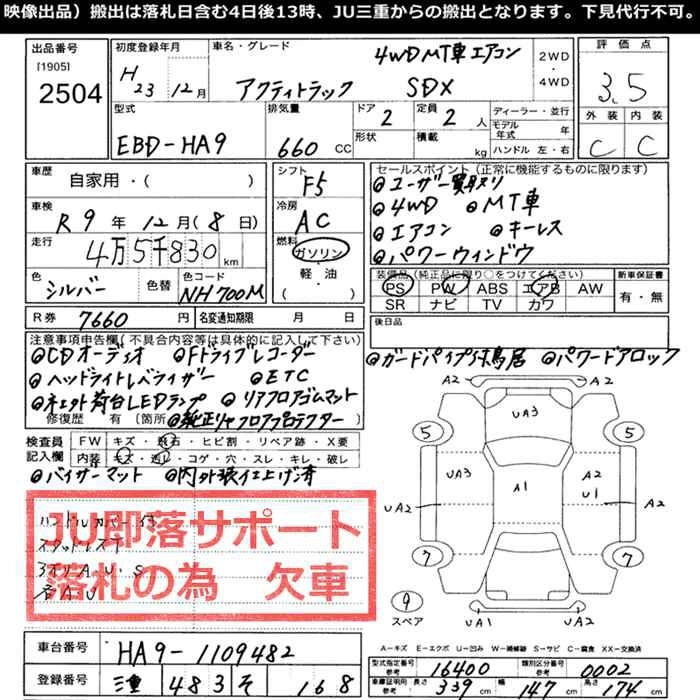 映像出品）搬出は落札日含む4日後13時、JU三重からの搬出となります。下見代行不可。
出品番号 初度登録年月 車名・グレード 4WD MT車 エアコン 2WD・4WD 評価点
[1905] 2504 H23 12月 アクティトラック SDX 3.5
型式 排気量 ドア 定員 ディーラー・並行 外装 内装
EBD-HA9 660 CC 2 2人 モデル年式 年 C C
形状 積載 kg ハンドル 左・右
車歴 自家用・( ) シフト F5 セールスポイント(正常に機能するものに限ります)
◎ユーザー買取り
車検 R9年12月(8日) 冷房 AC ◎4WD ◎MT車
走行 4万5千830km 燃料 ガソリン・軽油 ◎エアコン ◎キーレス
◎パワーウィンドウ
色 シルバー 色替 色コード NH700M 装備品(純正品に限り○をつけてください) 新車保証書
PS PW ABS エアB AW 有・無
SR ナビ TV カワ
R券 7660円 名変通知期限 月 日 後日品
注意事項申告欄(不具合内容等は具体的に記入して下さい) ◎ガードパイプ付鳥居 ◎パワードアロック
◎CDオーディオ ◎Fドライブレコーダー
◎ヘッドライトレベライザー ◎ETC
◎ネェ外荷台LEDランプ ◎リアフロアゴムマット
修復歴 有 (箇所 ◎純正リヤフロアプロテクター)
検査員記入欄 FW キズ・飛石・ヒビ割・リペア跡・X要
内装 キズ・汚レ・コゲ・穴・スレ・キレ・破レ
◎バイザーマット ◎内外装仕上げ済
ハンドルカバー付
スタッドレスT
JU即落サポート
落札の為 欠車
A2 A2
UA3
5 5
UA3 A1 A2 U1
UA2 A2
7 7
9 スペア
UA1 UA2
A-キズ E-エクボ U-凹み W-補修跡 S-サビ C-腐食 XX-交換済
車台番号 HA9-1109482
登録番号 三重 483 そ 168
型式指定番号 参考 16400 類別区分番号 参考 0002
車庫証明用 参考 長さ 339cm 幅 147cm 高さ 174cm